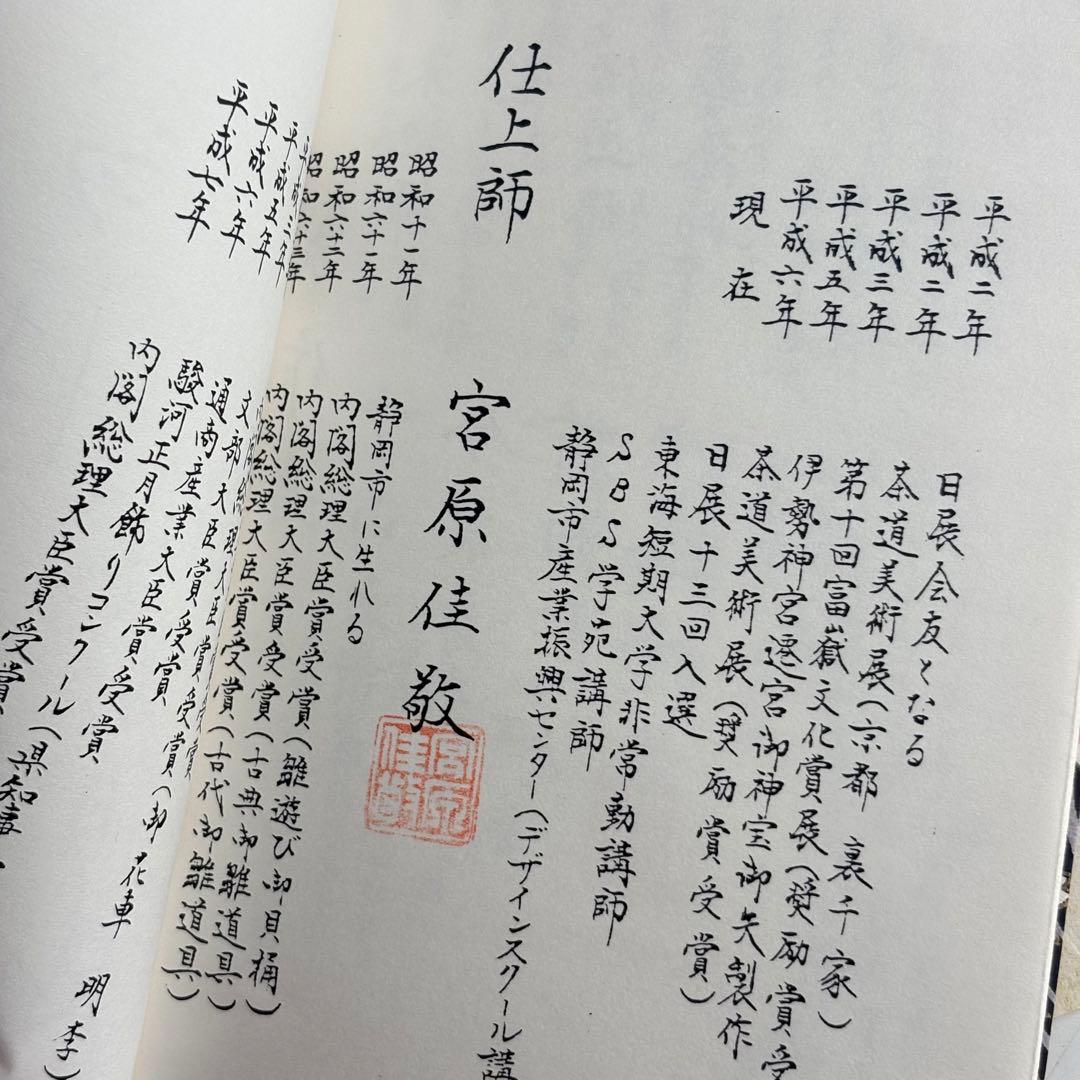 平成二年 日展会友となる
平成二年 茶道美術展(京都 裏千家)
平成三年 第十回富嶽文化賞展(奨励賞受
平成五年 伊勢神宮遷宮御神宝御矢製作
平成六年 茶道美術展(奨励賞受賞)
現在 日展十三回入選
東海短期大学非常勤講師
SBS学苑講師
静岡市産業振興センター(デザインスクール講
仕上師 宮原佳敬
宮原佳敬
昭和十一年 静岡市に生れる
昭和六十一年 内閣総理大臣賞受賞(雛遊び御貝桶)
昭和六十二年 内閣総理大臣賞受賞(古典御雛道具)
昭和六十三年 内閣総理大臣賞受賞(古代御雛道具)
平成三年
平成五年 通商産業大臣賞受賞(御花車
平成六年 駿河正月飾りコンクール(県知事
平成七年 内閣総理大臣賞受賞